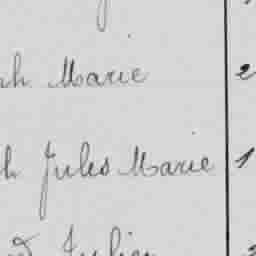 ah Marie 2
h Jules Marie 1
d Julien